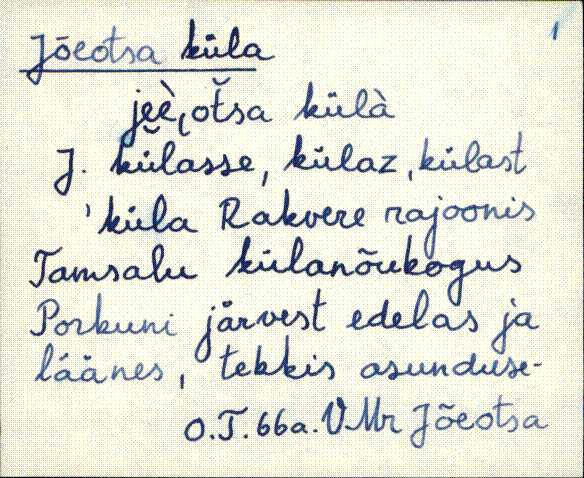 Jõeotsa küla
jeè̬otsa külà
J. külasse, külaz, külast
'küla Rakvere rajoonis
Tamsalu külanõukogus
Porkuni järvest edelas ja
läänes, tekkis asunduse-
O.T. 66a. VMr Jõeotsa